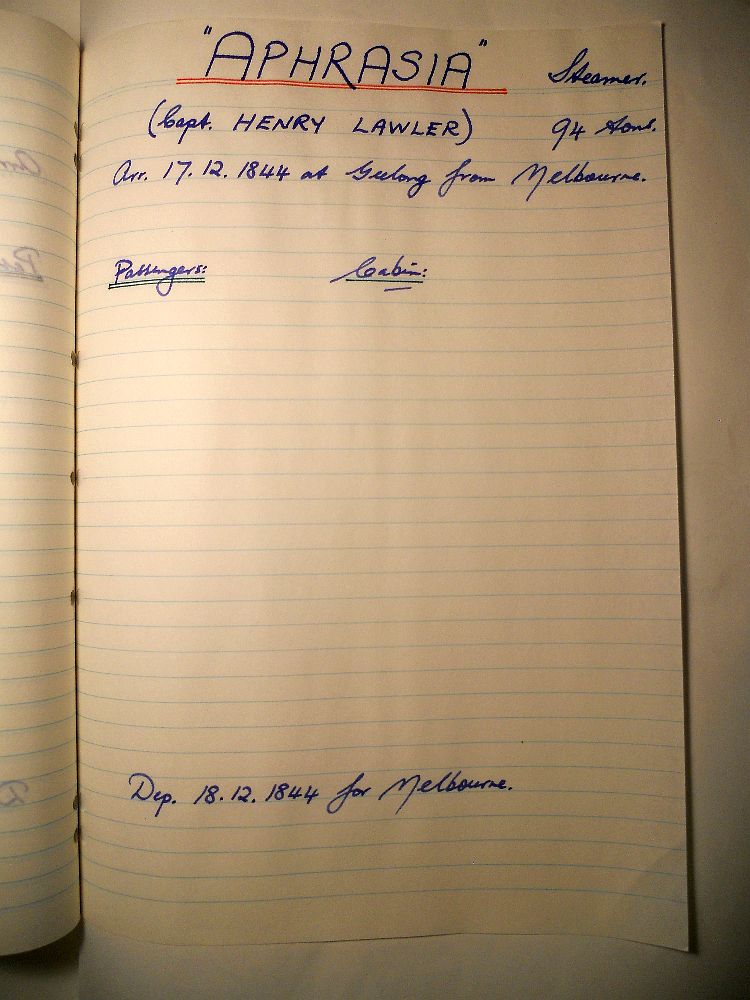 "APHRASIA" Steamer.
(Capt. HENRY LAWLER) 94 tons.
Arr. 17.12.1844 at Geelong from Melbourne.
Passengers: Cabin:
Dep. 18.12.1844 for Melbourne.